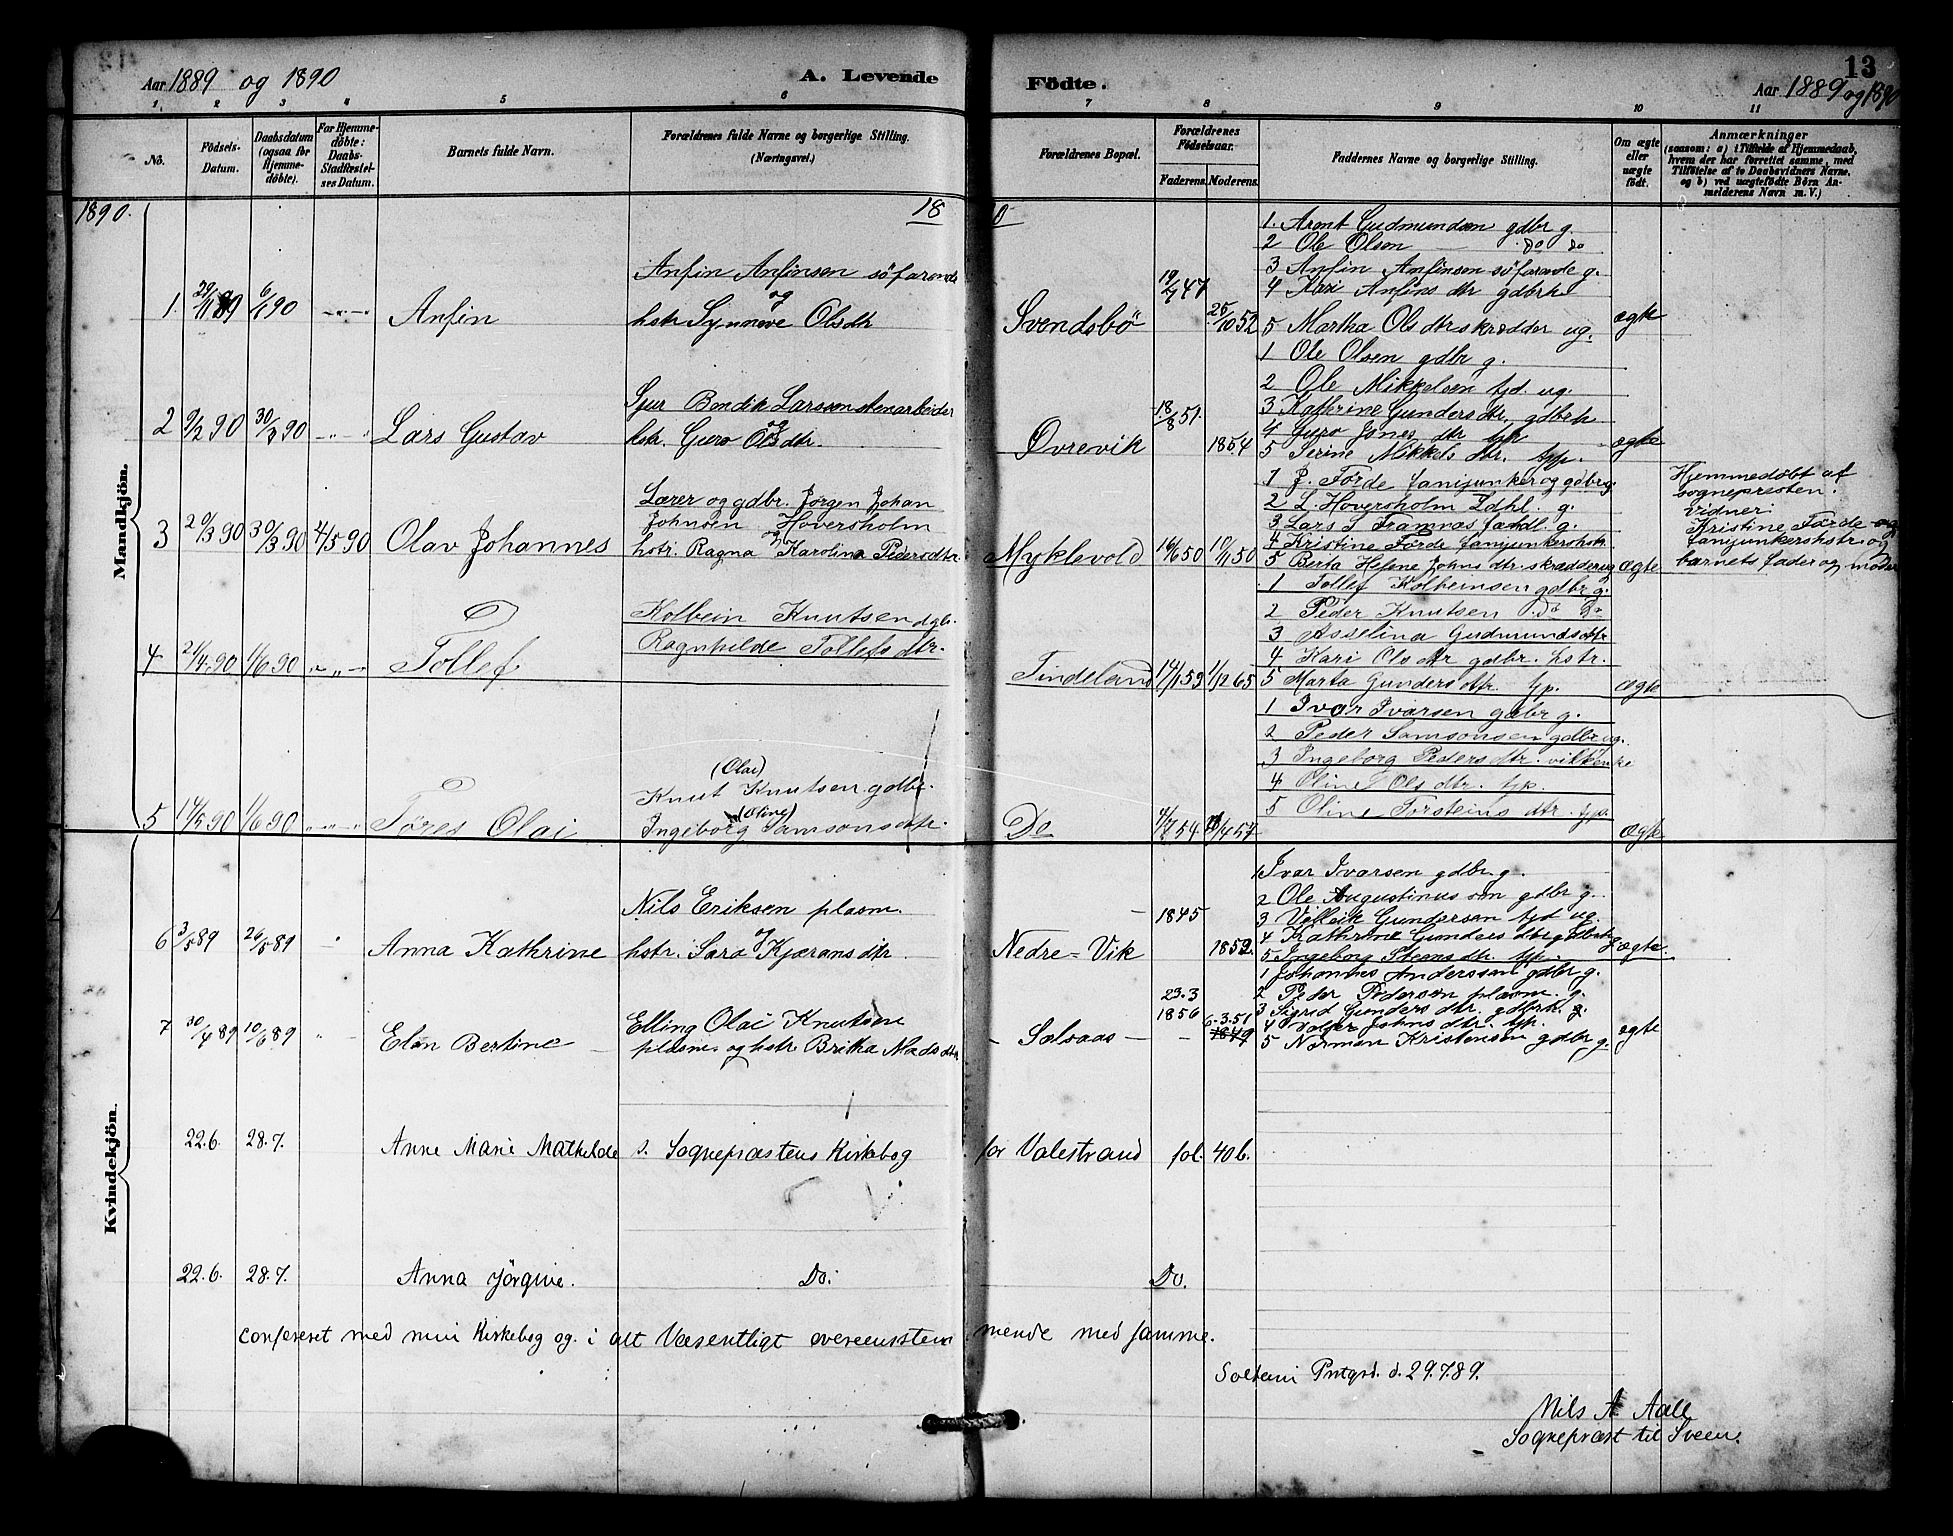 Aar 1889 og 1890
A. Levende Födte.
13
Aar 1889 og 1890
1 2 3 4 5 6 7 8 9 10 11
No.
Födsels-Datum.
Daabsdatum (ogsaa för Hjemme-döbte).
For Hjemme-döbte: Daabs-Stadfæstel-ses Datum.
Barnets fulde Navn.
Forældrenes fulde Navne og borgerlige Stilling. (Næringsvei.)
Forældrenes Bopæl.
Forældrenes Födselsaar.
Faderens. Moderens.
Faddernes Navne og borgerlige Stilling.
Om ægte eller uægte födt.
Anmærkninger
(saasom: a) i Tilfælde af Hjemmedaab, hvem der har forrettet samme, med Tilföielse af to Daabsvidners Navne. og b) ved uægtefödte Börn An-melderens Navn m. V.)
1890.
18 90
Mandkjön.
1. 29/11 89 6/1 90 Anfin
Anfin Anfinsen söfarende
og
hstr Synneve Olsdtr
Svendsbö 19/7 47 25/10 52
1. Arent Gudmundsen gdbr g.
2 Ole Olsen Do Do
3 Anfin Anfinsen söfarende g.
4 Kari Anfins dtr gdbrk
5 Martha Ols dtr skrædder ug.
ægte
2 9/2 90 30/3 90 Lars Gustav
Sjur Bendik Larsen stenarbeider
og
hstr. Guro Olsdtr.
Øvrevik 18/8 51. 1854
1 Ole Olsen gdbr g.
2 Ole Mikkelsen tjd ug.
3 Kathrine Gunders dtr, gdbrk
4 Guro Jones dtr tjp
5 Serine Mikkels dtr. tjp.
ægte
3 20/3 90 30/3 90 4/5 90 Olav Johannes
Lærer og gdbr. Jörgen Johan
Johnsen Hoversholm
og
hstr. Ragna Karolina Pedersdtr
Myklevold 16/6 50 10/11 50
1 J. Förde fanejunker og gdbr g.
2 L. Hoversholm Ldhl. g.
3 Lars T. Framnæs g.
4 Kristine Förde fanejunkershstr.
5 Berta Helene Johns dtr. skrædder ug
ægte
Hjemmedöbt af
sognepresten.
Vidner:
Kristine Förde
fanejunkershstr. og
barnets fader og moder
4 21/4 90 1/6 90 Tollef
Kolbein Knutsen gdb.
Ragnhilde Tollefsdtr.
Tindeland 14/1 59 1/12 65
1 Tollef Kolbeinsen gdbr g.
2 Peder Knutsen Do Do
3 Asselina Gudmundsdtr
4 Kari Olsdtr gdbr. hstr.
5 Marta Gunders dtr. tjp.
ægte
5 17/5 90 1/6 90 Töres Olai
(Olai)
Knut Knutsen gdbr.
(Oline)
Ingeborg Samsonsdtr.
Do 4/7 54 /4 57
1 Ivar Ivarsen gdbr g.
2 Peder Samsonsen gdbr ug.
3 Ingeborg Peders dtr.
4 Oline T Ols dtr. tjp.
5 Oline Torsteins dtr. tjp.
ægte
Kvindekjön.
6 3/5 89 26/5 89 Anna Kathrine
Nils Eriksen plasm.
og
hstr. Sara Kjærans dtr.
Nedre=Vik 1845 1852.
1 Ivar Ivarsen gdbr g.
2 Ole Augustinussen gdbr g.
3 Villeik Gundersen tjd ug.
4 Kathrine Gunders dtr gdbrk g
5 Ingeborg Steens dtr. tjp.
ægte.
7 30/4 89 10/6 89 Elen Bertine
Elling Olai Knutsen
plasm. og hstr Britha Mads dtr
Salsaas 23.3 1856 6.3.51 1849
1 Johannes Anderssen gdbr g.
2 Peder Pedersen plasm. g.
3 Sigrid Gunders dtr. gdbrk. g.
4 Johns dtr. tjp.
5 Norman Kristensen gdbr g.
ægte
22.6. 28.7. Anne Marie Mathilde s. Sognepræstens Kirkebog for Valestrand fol. 40 b.
22.6. 28.7. Anna Jörgine. Do. Do.
Confereret med min Kirkebog og i alt Væsentligt overeensstem mende med samme.
Prstgrd. d. 29.7.89.
Nils A Aall
Sognepræst til Sveen.